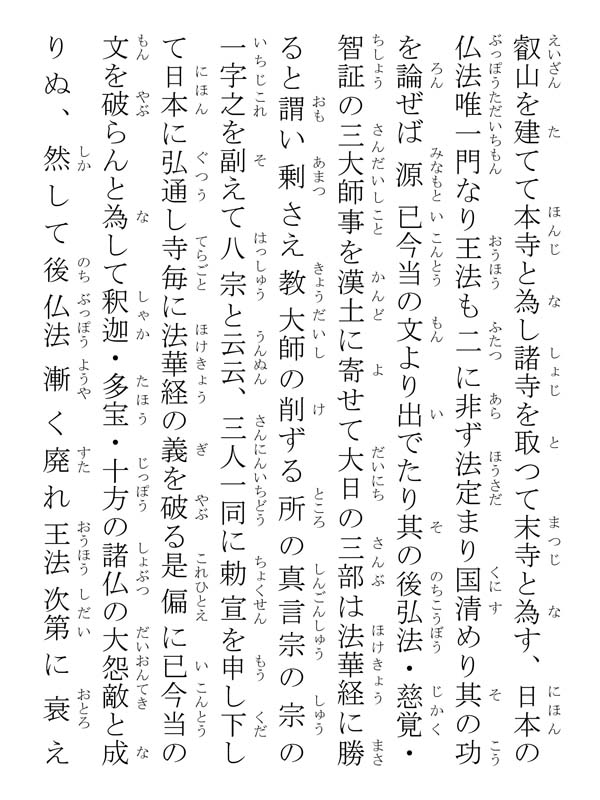 叡山を建てて本寺と為し諸寺を取つて末寺と為す、日本の
仏法唯一門なり王法も二に非ず法定まり国清めり其の功
を論ぜば源已今当の文より出でたり其の後弘法・慈覚・
智証の三大師事を漢土に寄せて大日の三部は法華経に勝
ると謂い剰さえ教大師の削ずる所の真言宗の宗の
一字之を副えて八宗と云云、三人一同に勅宣を申し下し
て日本に弘通し寺毎に法華経の義を破る是偏に已今当の
文を破らんと為して釈迦・多宝・十方の諸仏の大怨敵と成
りぬ、然して後仏法漸く廃れ王法次第に衰え